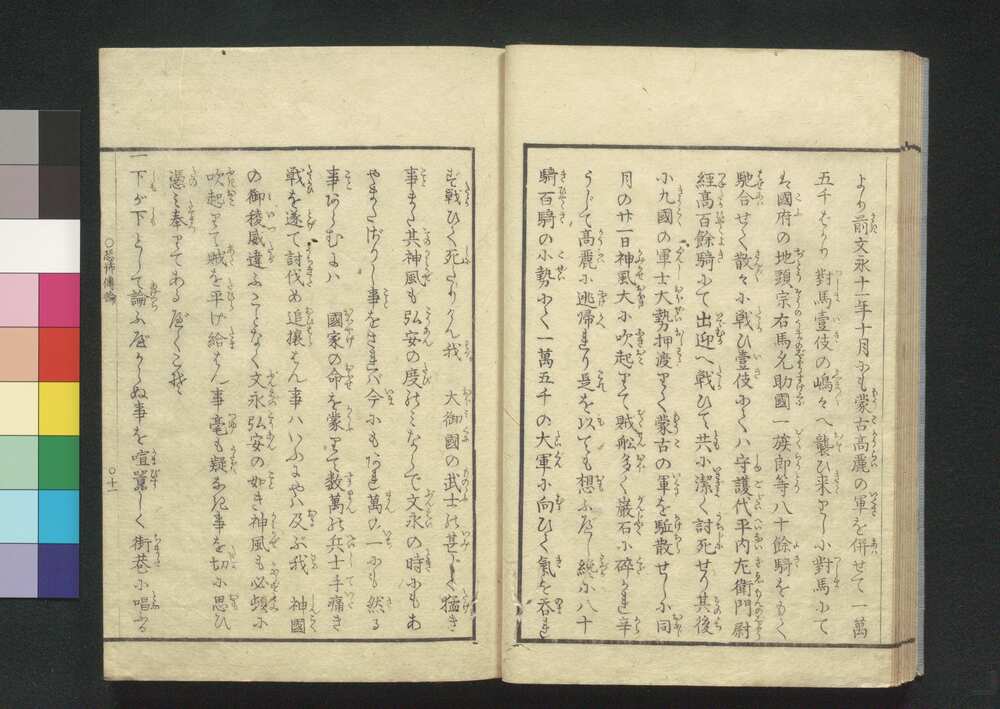 より前文永十一年十月にも蒙古高麗の軍を併せて一萬
五千ばかり對馬壹伎の嶋々へ襲ひ来りしに對馬にて
は國府の地頭宗右馬允助國一族郎等八十餘騎をもて
馳合せて散々に戦ひ壹伎にてハ守護代平内左衛門尉
經高百餘騎にて出迎へ戦ひて共に潔く討死せり其後
に九國の軍士大勢押渡りて蒙古の軍を駈散せしに同
月の廿一日神風大に吹起りて賊船多く巌石に碎かれ辛
うじて高麗に逃帰れり是を以ても想ふべし纔に八十
騎百騎の小勢にて一萬五千の大軍に向ひて氣を呑れ
ず戦ひて死たりけん我 大御國の武士の甚じく猛き
事また其神風も弘安の度のミならで文永の時にもあ
やまたざりし事をされバ今にも あれ萬の一にも然る
事あらむにハ 國家の命を蒙りて数萬の兵士手痛き
戦を遂て討伐め追攘はん事ハいふにや及ぶ我 神國
の御稜威違ふことなく文永弘安の如き神風も必頻に
吹起りて賊を平げ給はん事毫も疑なき事を切に思ひ
憑ミ奉りてあるべくこそ
一下が下として論ふべからぬ事を喧囂しく街巷に唱ふる